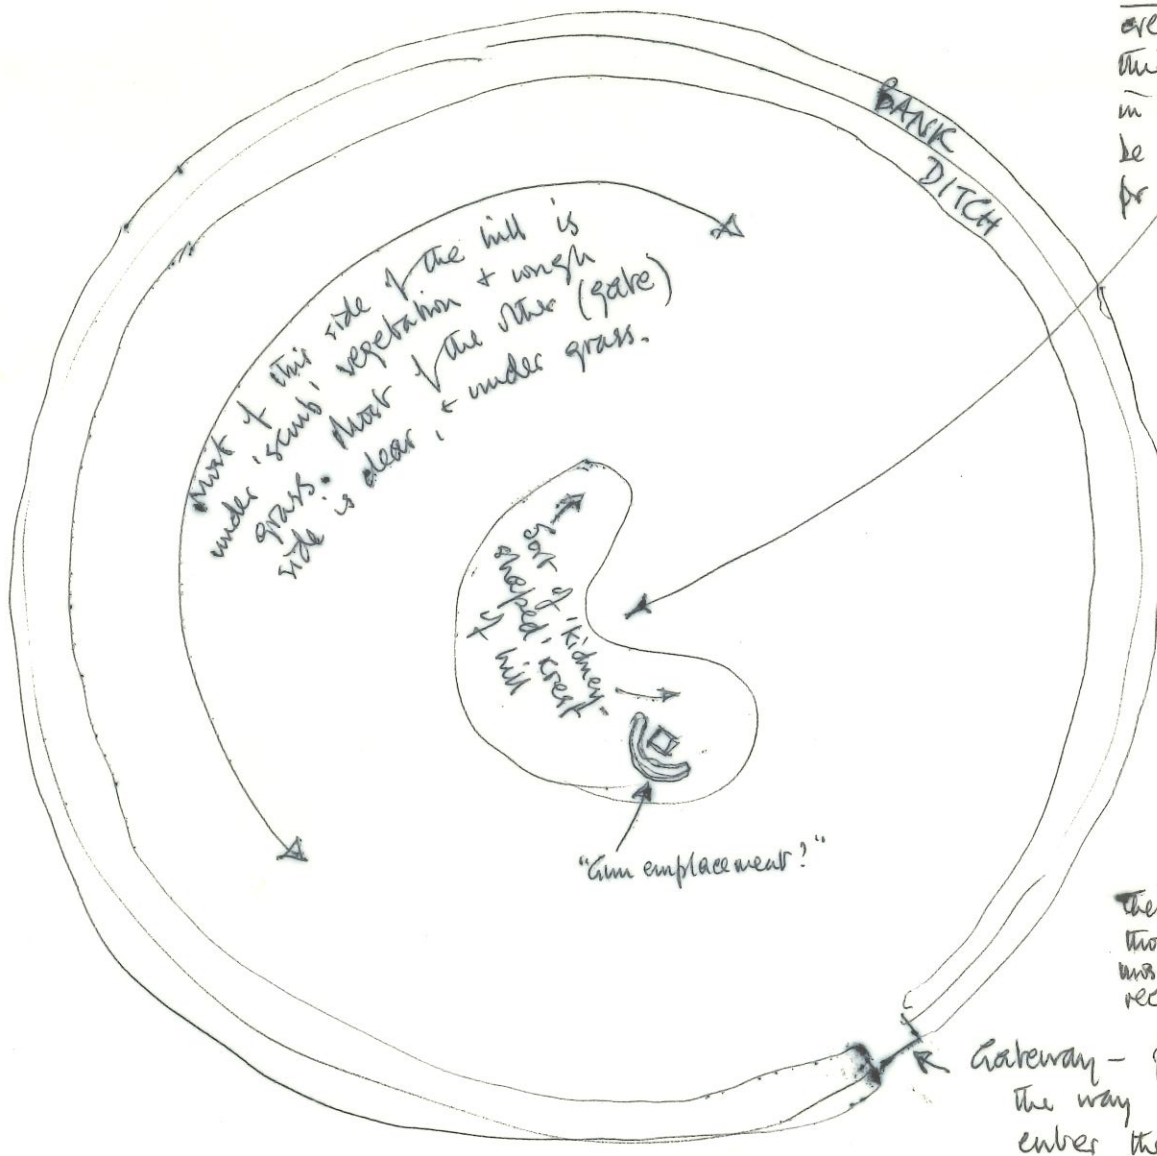 ere
this
in
be
pr
BANK
DITCH
Most of this side of the hill is
under 'scrub' vegetation + rough
grass. Most of the other (gate)
side is clear, + under grass.
Sort of 'kidney-
shaped' crest
to hill
"Gun emplacement?"
the
tho
mos
rec
Gateway -
the way
enter the